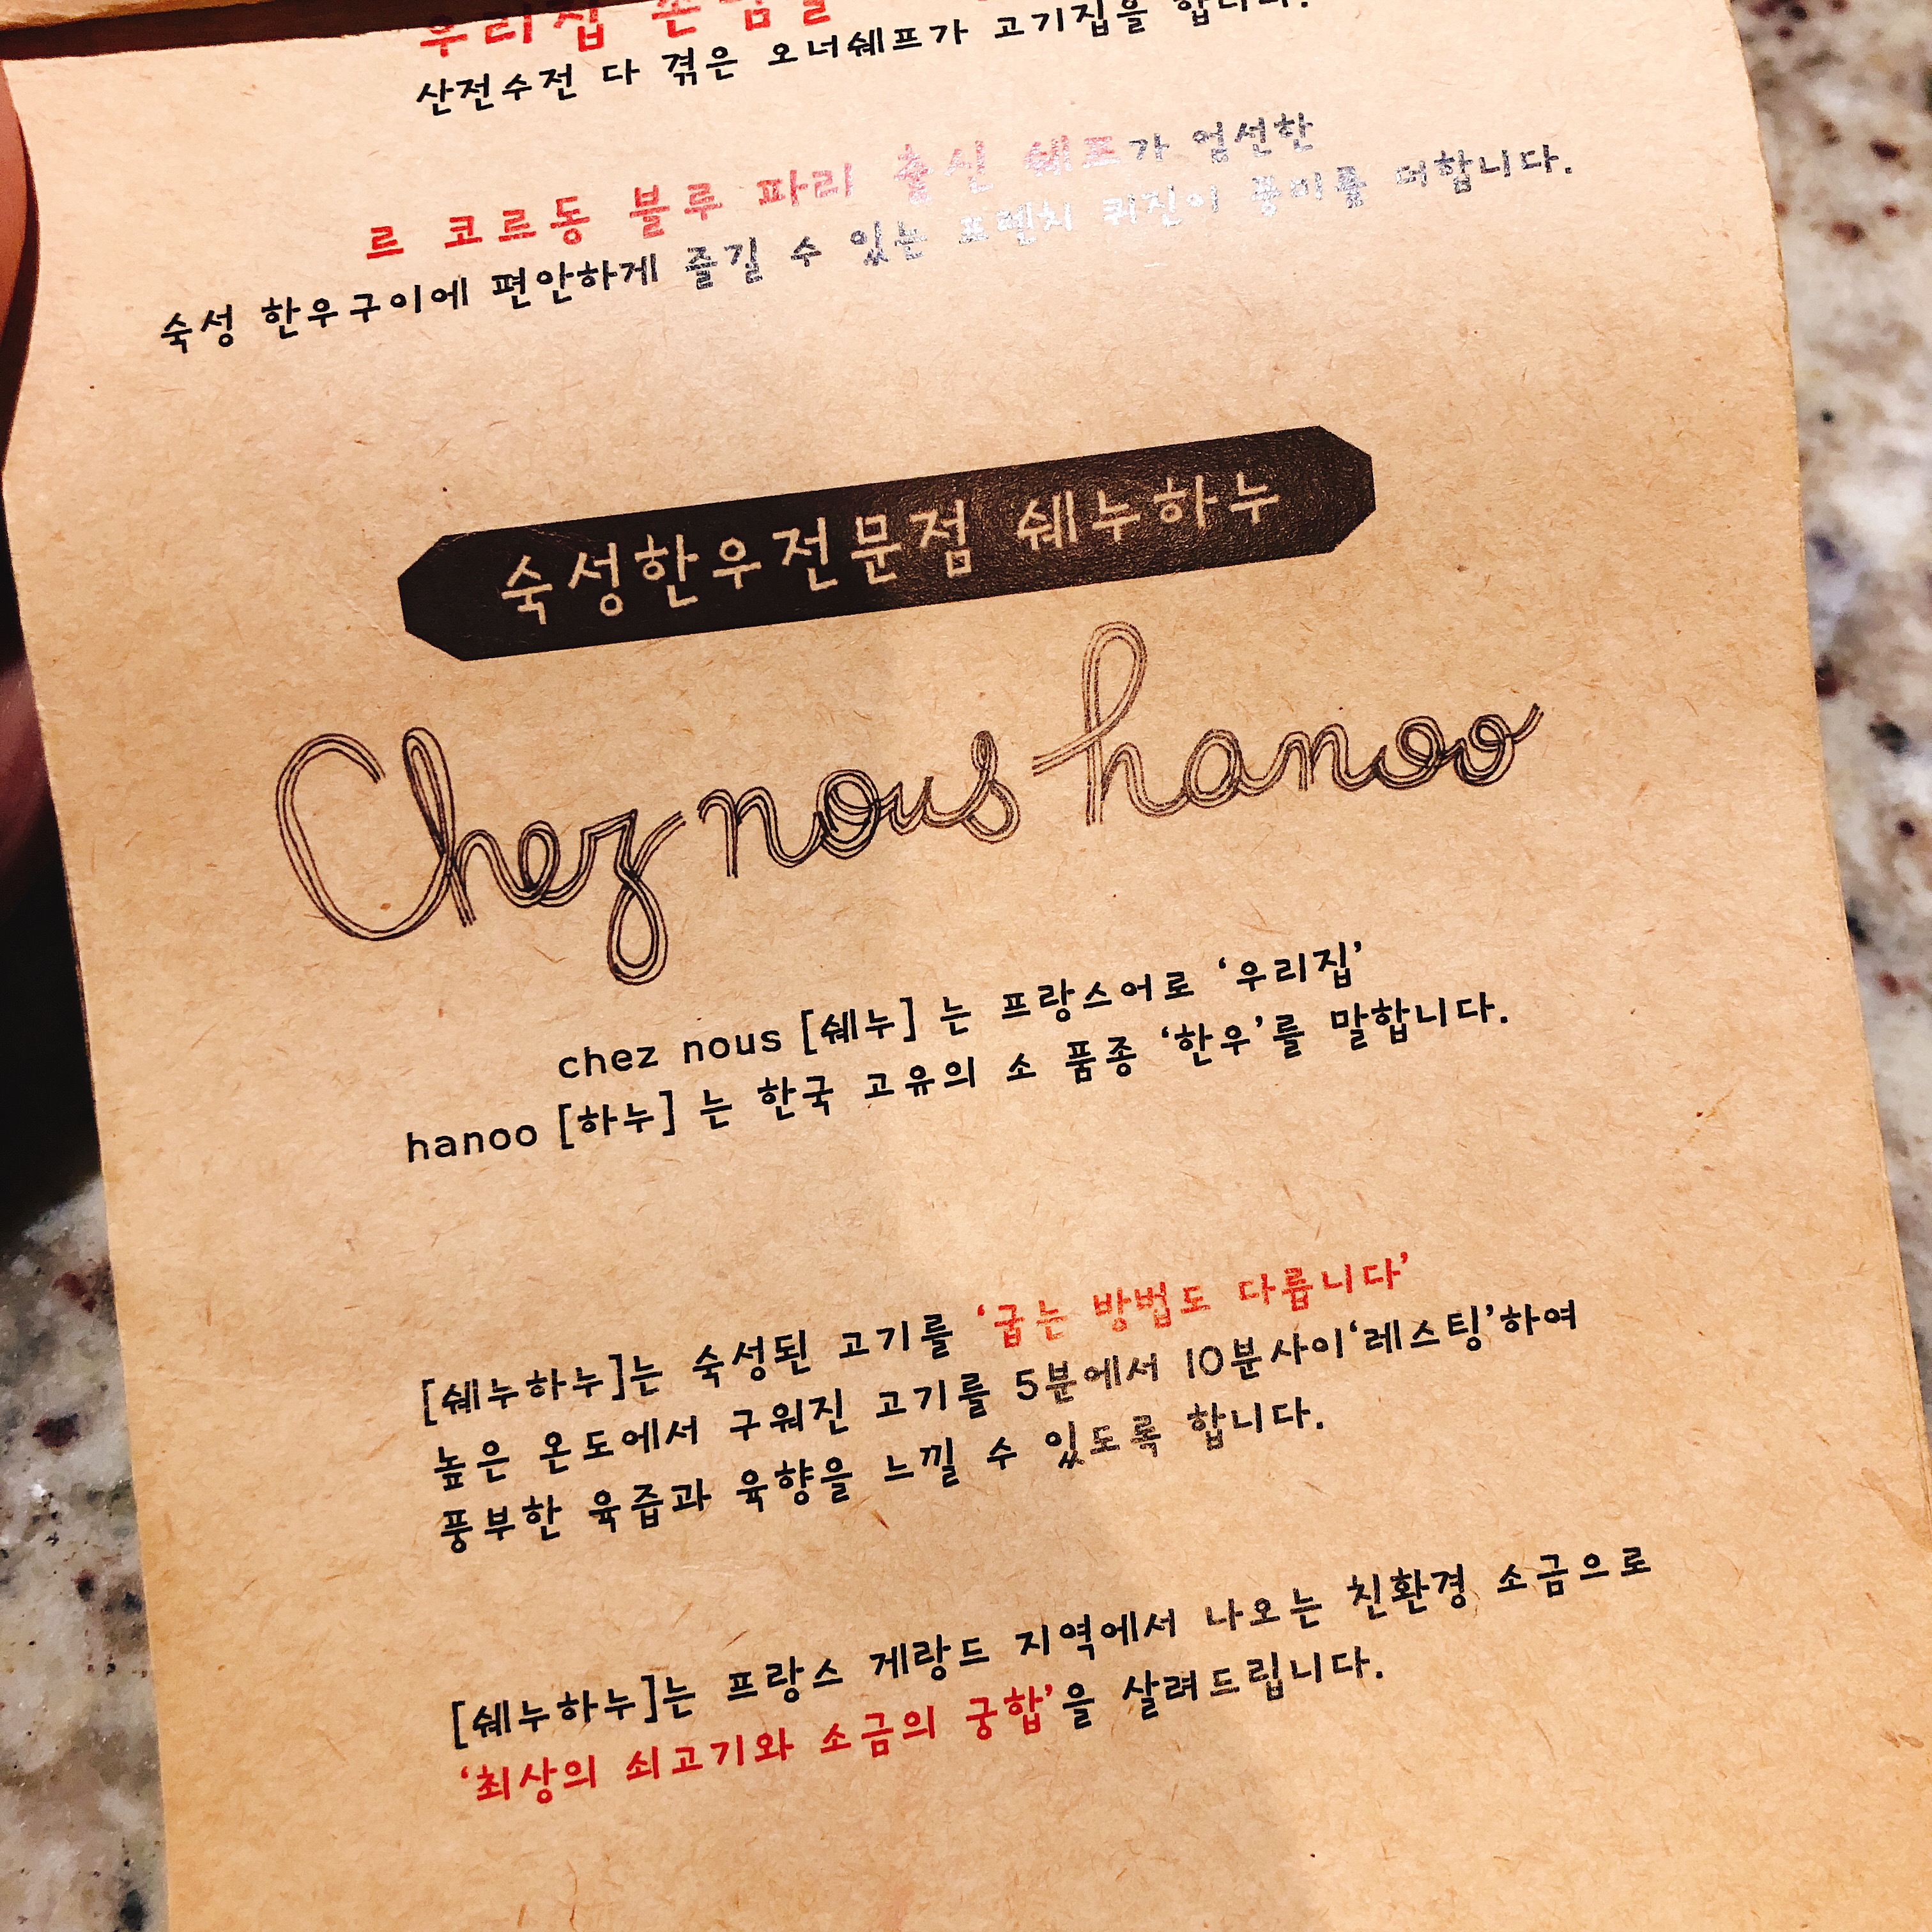 우리집 손님을
산전수전 다 겪은 오너쉐프가 고기집을 합니다.
르 코르동 블루 파리 출신 쉐프가 엄선한
숙성 한우구이에 편안하게 즐길 수 있는 프렌치 퀴진이 풍미를 더합니다.
숙성한우전문점 쉐누하누
Chez nous hanoo
chez nous [쉐누] 는 프랑스어로 ‘우리집’
hanoo [하누] 는 한국 고유의 소 품종 ‘한우’를 말합니다.
[쉐누하누]는 숙성된 고기를 ‘굽는 방법도 다릅니다’
높은 온도에서 구워진 고기를 5분에서 10분사이‘레스팅’하여
풍부한 육즙과 육향을 느낄 수 있도록 합니다.
[쉐누하누]는 프랑스 게랑드 지역에서 나오는 친환경 소금으로
‘최상의 쇠고기와 소금의 궁합’을 살려드립니다.